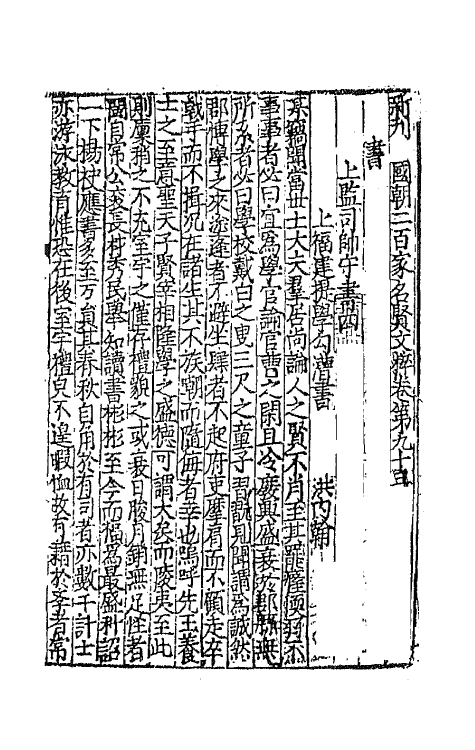 新刋 國朝二百家名賢文粹卷第九十五
書
上監司帥守書四
上福建提學勾漕書 洪内翰
某竊聞當世士大夫羣居尚論人之賢不肖至其罷癃傻弱不
事事者必曰宜為學官論官曹之閑且冷廢興盛衰於郡縣無
所系者必曰學校戴白之叟三尺之童子習説見聞謂為誠然
郡博學之來塗逢者不避坐肆者不起府吏摩肩而不顧走卒
戟手而不揖況在諸生其不族嘲而隨侮者幸也嗚呼先王養
士之至意聖天子賢宰相隆學之盛德可謂大矣而陵夷至此
則廩稍之不充室宇之僅存禮貌之或衰日朘月銷無足怪者
閩自常公衮長材秀民與知讀書彬彬至今而稱為最盛科詔
一下揚袂應書多至万員其春秋自用於有司者亦數千計士
亦游泳教育惟恐在後室宇禮皃不遑暇恤故有籍於季者常